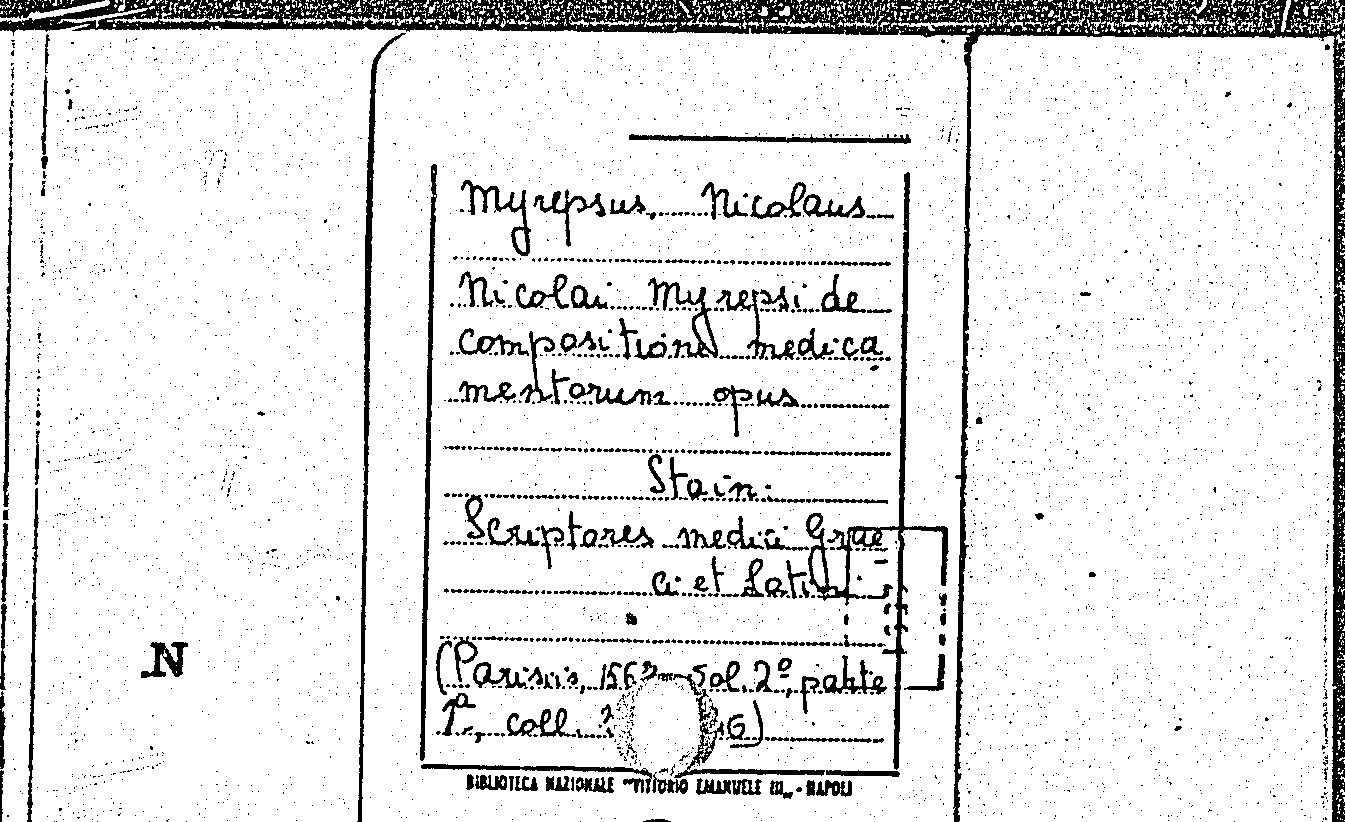 Myrepsus, Nicolaus
Nicolai Myrepsi de
compositione medica
mentorum opus
Stain.
Scriptores medici Grae-
ci et Latini
(Parisiis, vol. 2º, parte
1ª, coll.
N
BIBLIOTECA NAZIONALE "VITTORIO EMANUELE III„ - NAPOLI